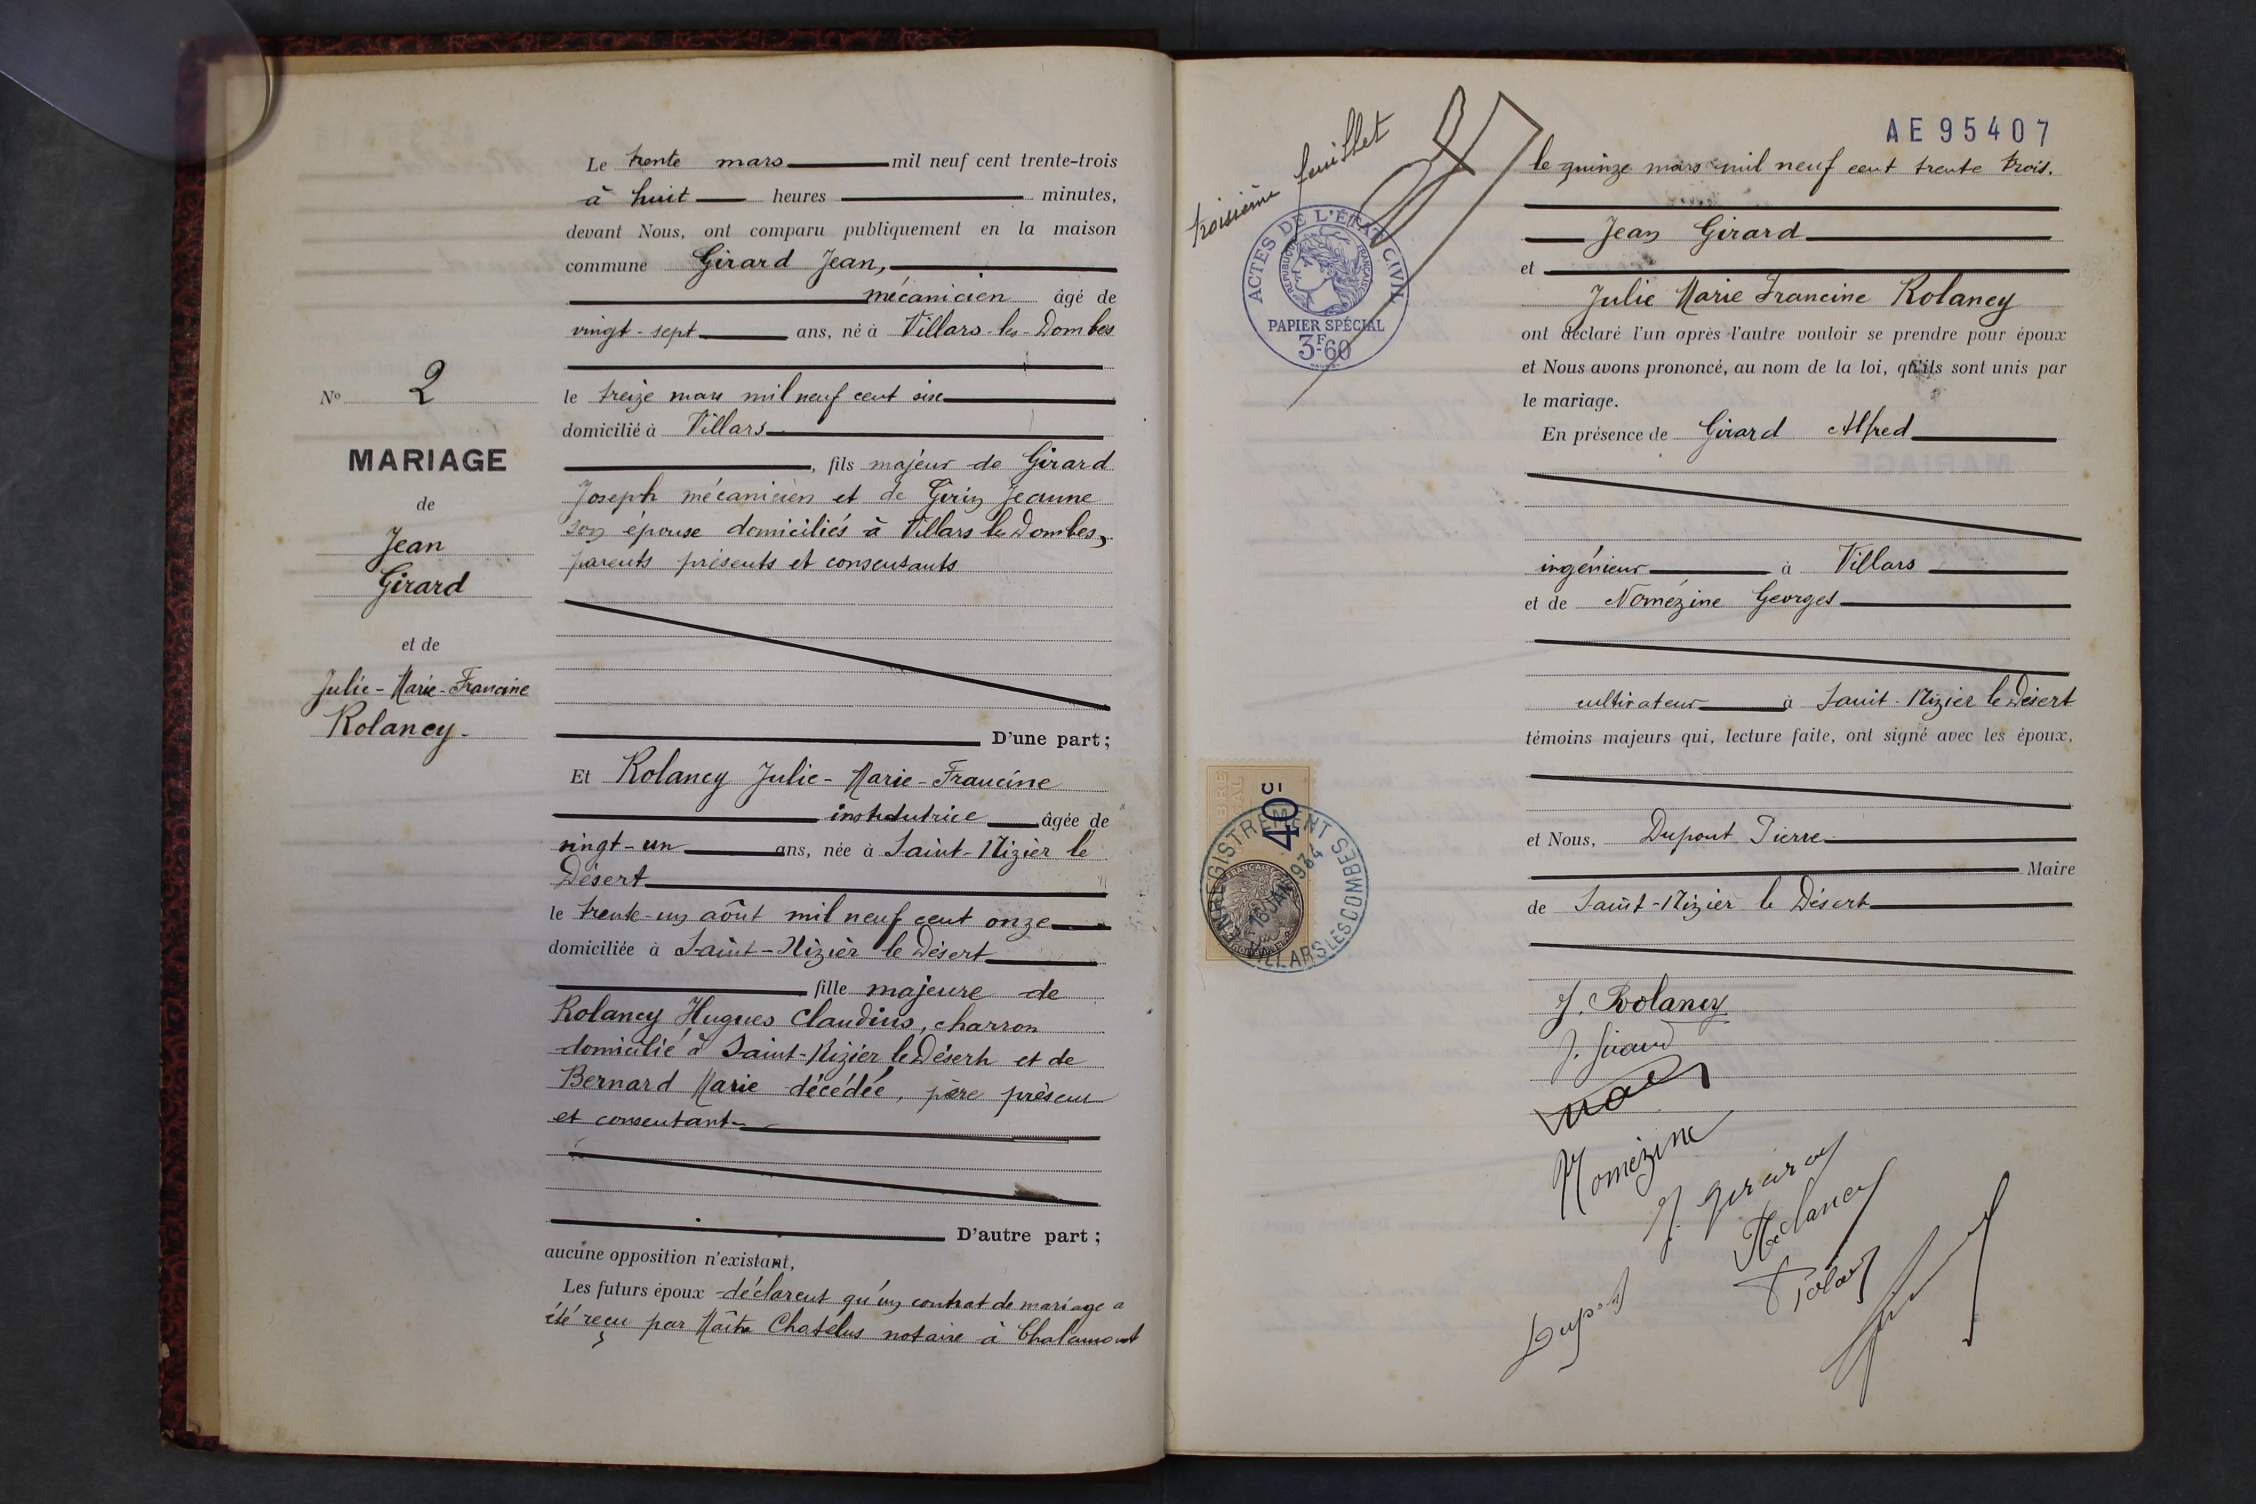 Le trente mars mil neuf cent trente-trois
à huit heures minutes,
devant Nous, ont comparu publiquement en la maison
commune Girard Jean,
mécanicien âgé de
vingt-sept ans, né à Villars-les-Dombes
le treize mars mil neuf cent six
domicilié à Villars
, fils majeur de Girard
Joseph mécanicien et de Girin Jeanne
son épouse domiciliés à Villars les Dombes,
parents présents et consentants
D'une part;
Et Rolancy Julie-Marie-Francine
institutrice âgée de
vingt-un ans, née à Saint-Nizier le
Désert
le trente-un août mil neuf cent onze
domiciliée à Saint-Nizier le Désert
fille majeure de
Rolancy Hugues Claudius, charron
domicilié à Saint-Nizier le Désert et de
Bernard Marie décédée, père présent
et consentant
D'autre part;
aucune opposition n'existant,
Les futurs époux déclarent qu'un contrat de mariage a
été reçu par Maître Chatelus notaire à Chalamont
No 2
MARIAGE
de
Jean
Girard
et de
Julie-Marie-Francine
Rolancy.
troisième feuillet
ACTES DE L'ÉTAT CIVIL
RÉPUBLIQUE FRANÇAISE
PAPIER SPÉCIAL
3F.60
AE 95407
le quinze mars mil neuf cent trente trois.
Jean Girard
et
Julie Marie Francine Rolancy
ont déclaré l'un après l'autre vouloir se prendre pour époux
et Nous avons prononcé, au nom de la loi, qu'ils sont unis par
le mariage.
En présence de Girard Alfred
ingénieur à Villars
et de Nomézine Georges
cultivateur à Saint-Nizier le Désert
témoins majeurs qui, lecture faite, ont signé avec les époux,
et Nous, Dupont Pierre
Maire
de Saint-Nizier le Désert
40c
ENREGISTREMENT
16 JAN 1934
VILLARS LES DOMBES
J. Rolancy
J. Girard
Nomézine
J. Girard
Rolancy
Dupont